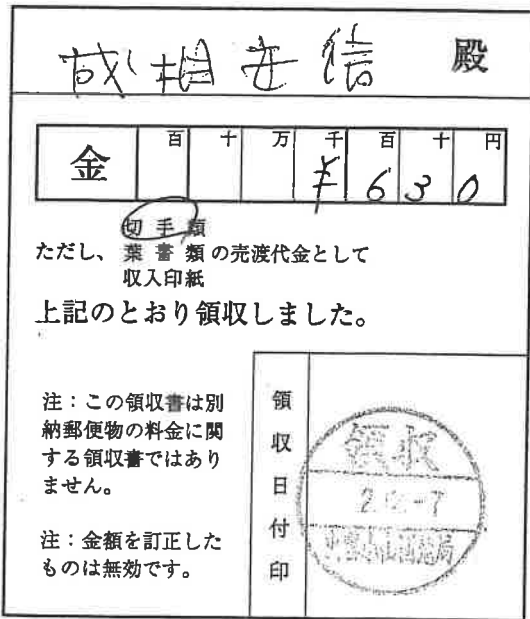 成相安信 殿
金 百 十 万 千 百 十 円
¥ 6 3 0
切手類
ただし、 葉書類の売渡代金として
収入印紙
上記のとおり領収しました。
注：この領収書は別
納郵便物の料金に関
する領収書ではあり
ません。
注：金額を訂正した
ものは無効です。
領収日付印
領収